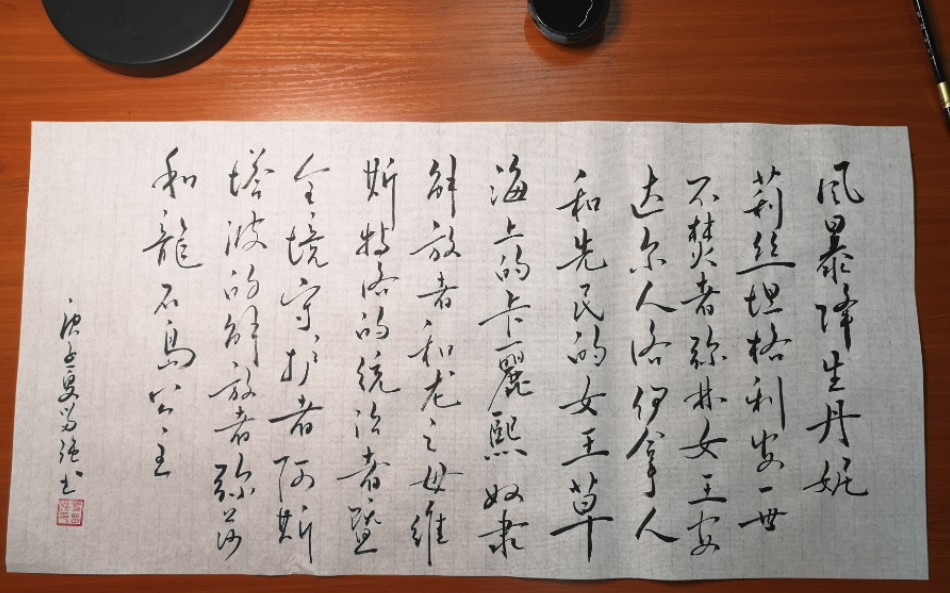 风暴降生丹妮
莉丝坦格利安一世
不焚者弥林女王安
达尔人洛伊拿人
和先民的女王草
海上的卡麗熙奴隶
解放者和龙之母维
斯特洛的统治者暨
全境守护者阿斯
塔波的解放者弥莎
和龍石島公主
庚子夏
书